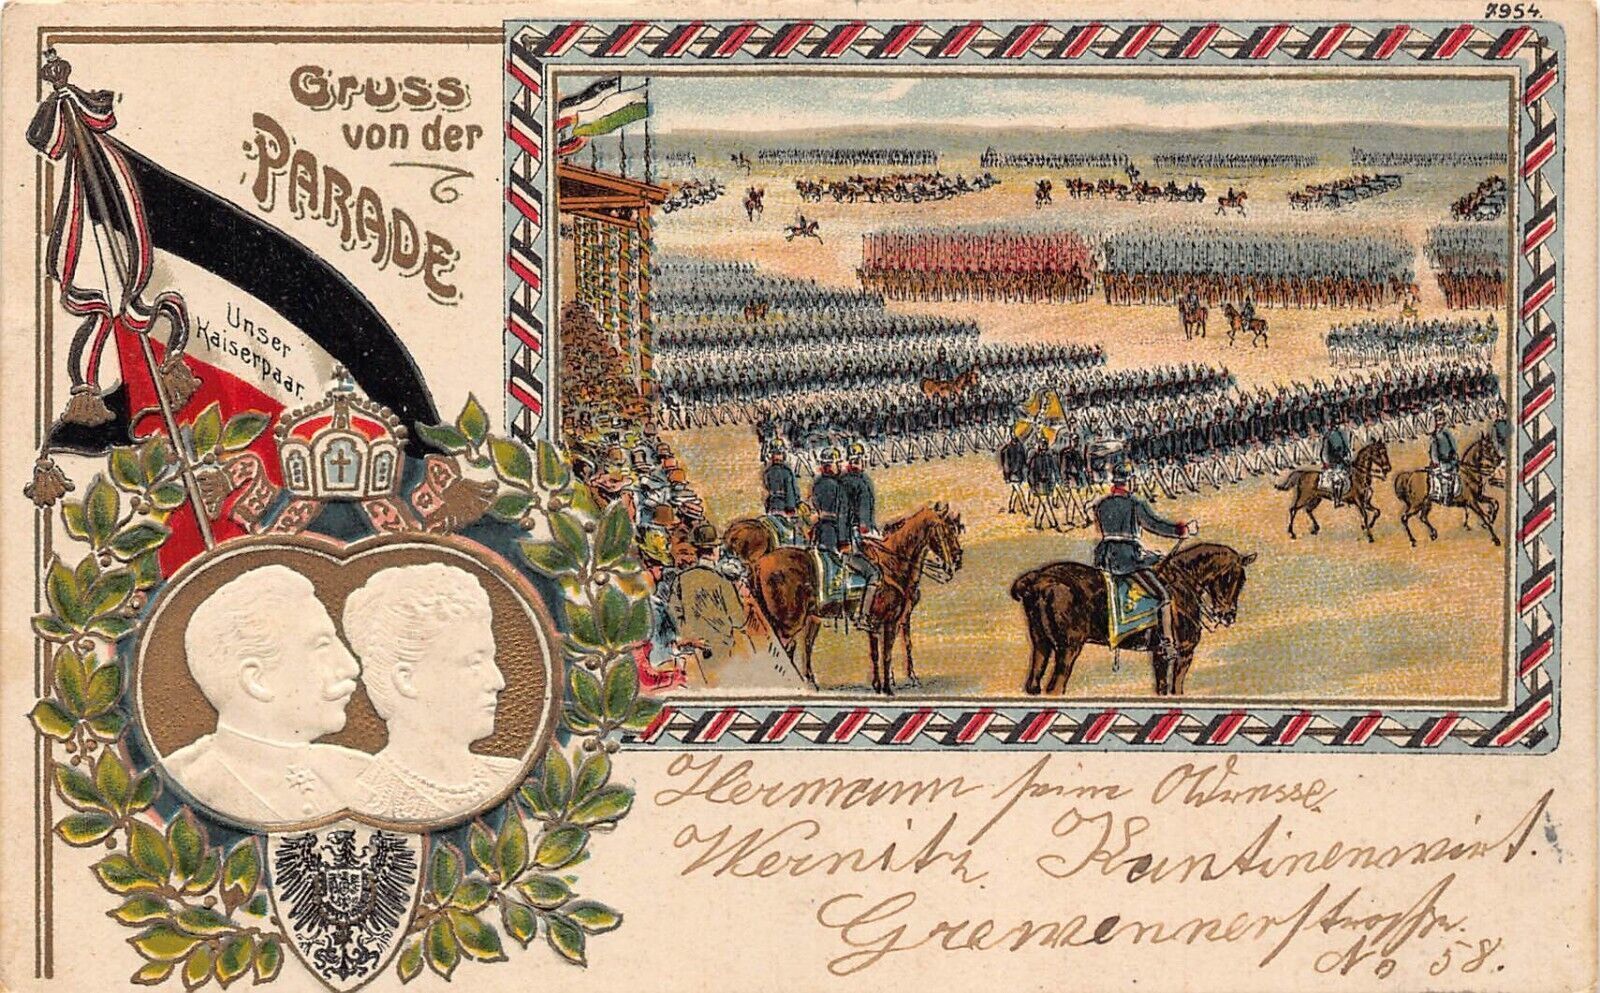 7954.
Gruss
von der
PARADE
Unser
Kaiserpaar.
Hermann seine Adresse.
Wernitz. Kantinenwirt.
Grewennerstrasse.
No 58.